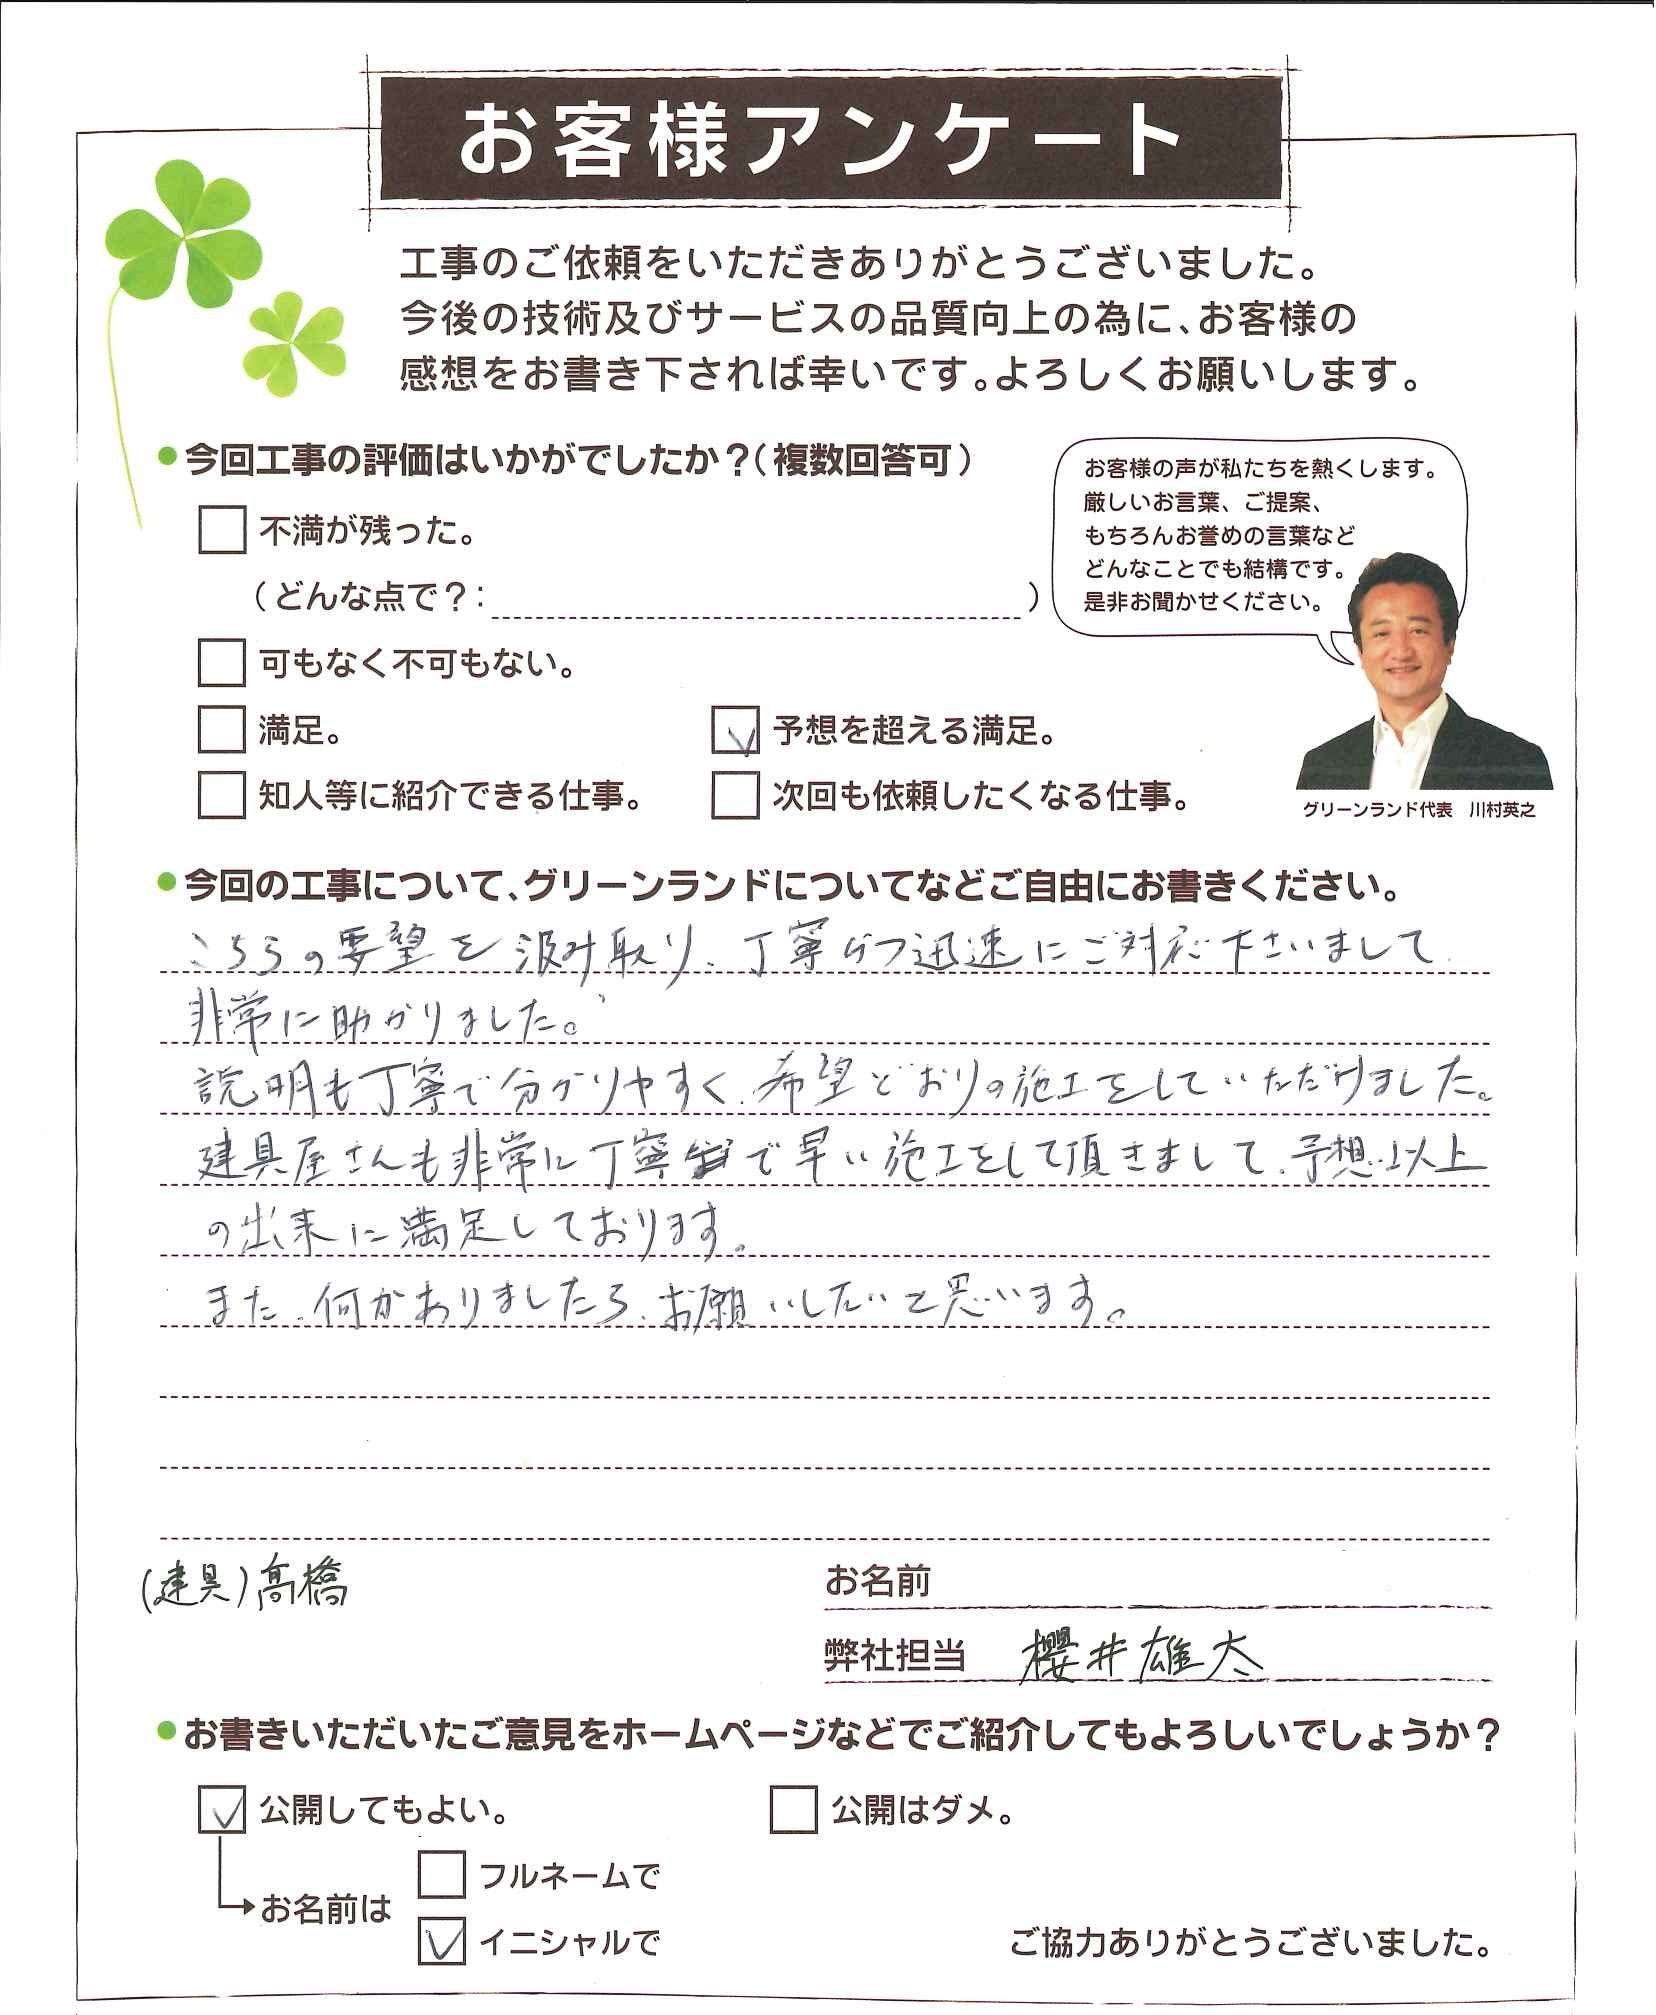 お客様アンケート
工事のご依頼をいただきありがとうございました。
今後の技術及びサービスの品質向上の為に、お客様の
感想をお書き下されば幸いです。よろしくお願いします。
●今回工事の評価はいかがでしたか？(複数回答可)
不満が残った。
(どんな点で？: )
可もなく不可もない。
満足。
予想を超える満足。
知人等に紹介できる仕事。
次回も依頼したくなる仕事。
お客様の声が私たちを熱くします。
厳しいお言葉、ご提案、
もちろんお誉めの言葉など
どんなことでも結構です。
是非お聞かせください。
グリーンランド代表 川村英之
●今回の工事について、グリーンランドについてなどご自由にお書きください。
こちらの要望を汲み取り、丁寧かつ迅速にご対応下さいまして
非常に助かりました。
説明も丁寧で分かりやすく、希望どおりの施工をしていただけました。
建具屋さんも非常に丁寧で早い施工をして頂きまして、予想以上
の出来に満足しております。
また、何かありましたら、お願いしたいと思います。
(建具)髙橋
お名前
弊社担当 櫻井雄太
●お書きいただいたご意見をホームページなどでご紹介してもよろしいでしょうか？
公開してもよい。
公開はダメ。
お名前は
フルネームで
イニシャルで
ご協力ありがとうございました。